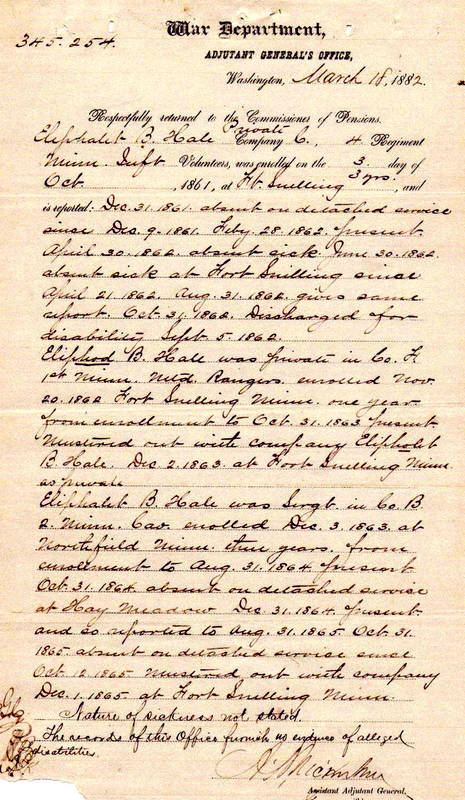 War Department,
345.254.
ADJUTANT GENERAL'S OFFICE,
Washington, March 18, 1882.
Respectfully returned to the Commissioner of Pensions.
Eliphalet B. Hale Private Company C., 4 Regiment
Minn. Inft Volunteers, was enrolled on the 3 day of
Oct. , 1861, at Ft. Snelling 3 yrs. , and
is reported: Dec. 31. 1861. absent on detached service
since Dec. 9. 1861. Feby. 28. 1862. present
April 30. 1862. absent sick June 30. 1862.
absent sick at Fort Snelling since
April 21. 1862. Aug. 31. 1862. gives same
report. Oct. 31. 1862. Discharged for
disability Sept. 5. 1862.
Eliphod B. Hale was private in Co. F.
1st Minn. Mtd. Rangers. enrolled Nov.
20. 1862 Fort Snelling Minn. one year.
from enrollment to Oct. 31. 1863 present.
Mustered out with company Eliphalet
B. Hale. Dec. 2. 1863. at Fort Snelling Minn.
as private
Eliphalet B. Hale was Sergt. in Co. B
2. Minn. Cav. enrolled Dec. 3. 1863. at
Northfield Minn. three years. from
enrollment to Aug. 31. 1864 present
Oct. 31. 1864. absent on detached service
at Hay Meadow Dec. 31. 1864. present
and so reported to Aug. 31. 1865. Oct. 31.
1865. absent on detached service since
Oct. 12. 1865 Mustered out with company
Dec. 1. 1865 at Fort Snelling Minn.
Nature of sickness not stated.
The records of this Office furnish no evidence of alleged
disabilities.
Assistant Adjutant General.